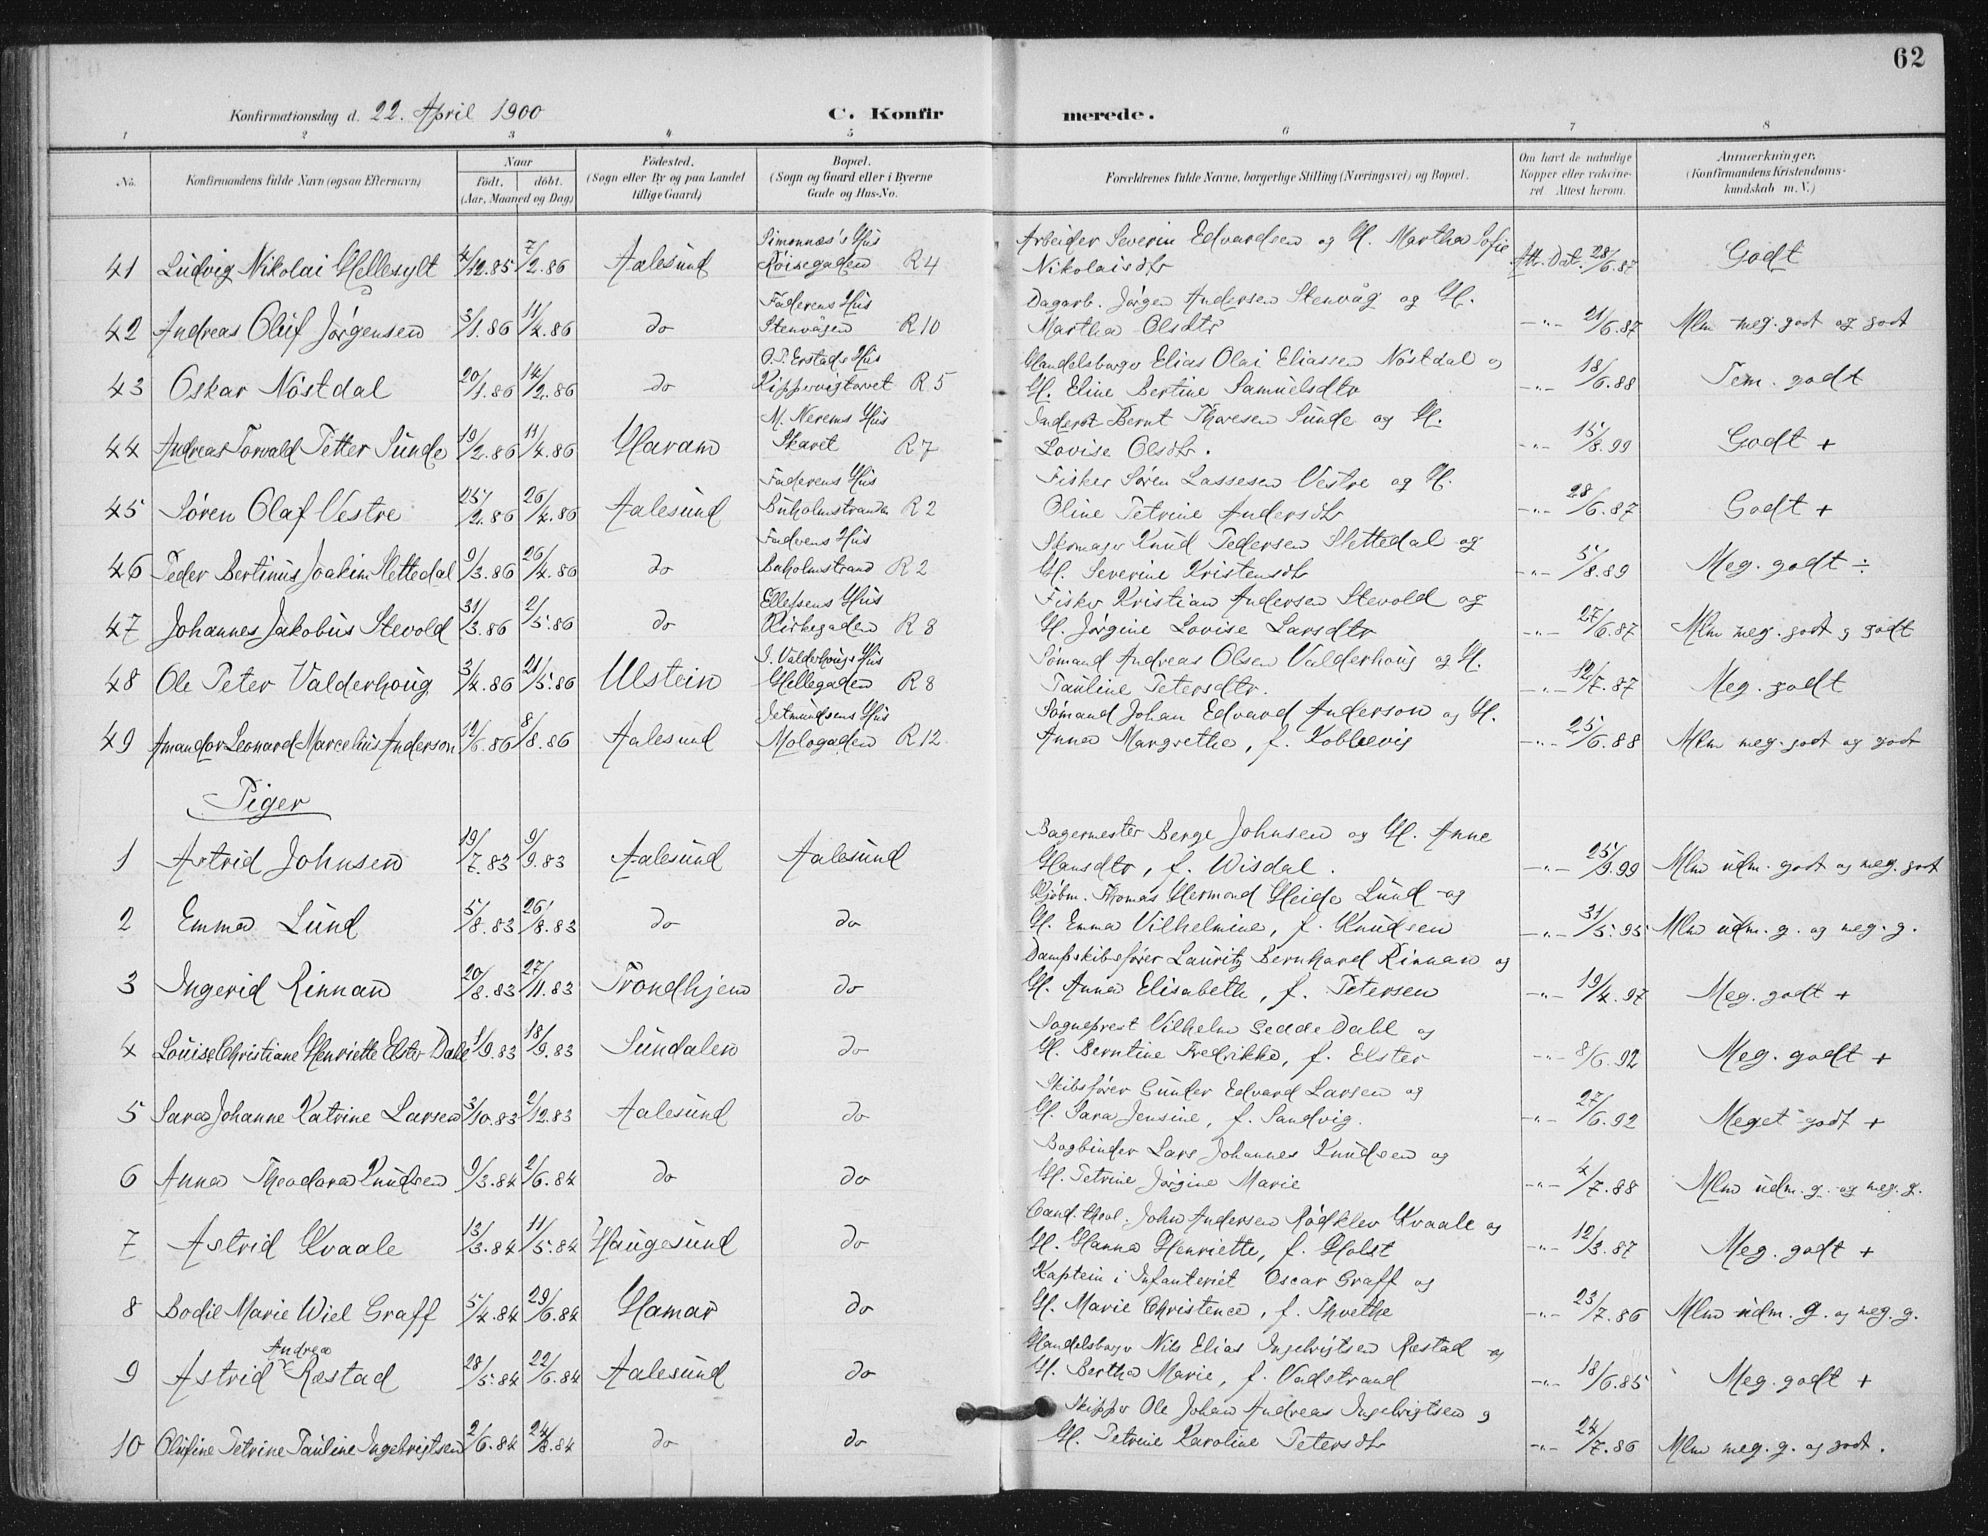 62
Konfirmationsdag d. 22. April 1900 C. Konfirmerede.
1 2 3 4 5 6 7 8
No. Konfirmandens fulde Navn (ogsaa Efternavn) Naar födt. döbt. (Aar, Maaned og Dag) Födested. (Sogn eller By og paa Landet tillige Gaard) Bopæl. (Sogn og Gaard eller i Byerne Gade og Hus-No. Forældrenes fulde Navne, borgerlige Stilling (Næringsvei) og Bopæl. Om havt de naturlige Kopper eller vakcineret. Attest herom. Anmærkninger. (Konfirmandens Kristendomskundskab m. V.)
Simonnæs's Hus Arbeider Severin Edvardsen og H. Martha Sofie
41 Ludvig Nikolai Hellesylt 4/12.85 7/2.86 Aalesund Röisegaden R4 Nikolaisdtr Att. Dat. 28/6.87 Godt
Faderens Hus Dagarb. Jørgen Andersen Stenvåg og H.
42 Andreas Oluf Jørgensen 3/1.86 11/4.86 do Stenvågen R10 Martha Olsdtr -"- 21/6.87 Mlm meg. godt og godt
O.P. Erstads Hus Handelsborger Elias Olai Eliassen Nöstdal og
43 Oskar Nöstdal 20/1.86 14/2.86 do Kippervigtorvet R5 H. Eline Bertine Samuelsdtr -"- 18/6.88 Tem. godt
M. Nerems Hus Inderst Bernt Thoresen Sunde og H.
44 Andreas Torvald Petter Sunde 19/2.86 11/4.86 Haram Skaret R7 Lovise Olsdtr. -"- 15/8.99 Godt +
Faderens Hus Fisker Søren Lassesen Vestre og H.
45 Søren Olaf Vestre 25/2.86 26/4.86 Aalesund Buholmstranden R2 Oline Petrine Andersdtr -"- 28/6.87 Godt +
Faderens Hus Skomager Knud Pedersen Slettedal og
46 Peder Bertinus Joakim Slettedal 9/3.86 26/4.86 do Buholmstrand R2 H. Severine Kristensdtr -"- 5/8.89 Meg. godt ÷
Ellefsens Hus Fisker Kristian Andersen Stevold og
47 Johannes Jakobus Stevold 31/3.86 2/5.86 do Kirkegaden R8 H. Jørgine Lovise Larsdtr -"- 27/6.87 Mlm meg. godt g godt
I. Valderhougs Hus Sömand Andreas Olsen Valderhoug og H.
48 Ole Peter Valderhoug 3/4.86 21/5.86 Ulstein Hellegaden R8 Pauline Petersdtr. -"- 12/7.87 Meg. godt
Jetmundsens Hus Sömand Johan Edvard Anderson og H.
49 Amandor Leonard Marcelius Anderson 12/6.86 8/8.86 Aalesund Mologaden R12 Anna Margrethe, f. Koblevig -"- 25/6.88 Mlm meg. godt og godt
Piger
Bagermester Berge Johnsen og H. Anne
1 Astrid Johnsen 19/7.83 9/9.83 Aalesund Aalesund Hansdtr, f. Wisdal. -"- 25/9.99 Mlm udm. godt og meg. godt
Kjöbm. Thomas Hermond Heide Lund og
2 Emma Lund 5/8.83 26/8.83 do do H. Emma Vilhelmine, f. Knudsen -"- 31/5.95 Mlm udm. g. og meg. g.
Dampskibsfører Lauritz Bernhard Rinnan og
3 Ingerid Rinnan 20/8.83 27/11.83 Trondhjem do H. Anna Elisabeth, f. Petersen -"- 19/4.97 Meg. godt +
Sogneprest Vilhelm Gedde Dahl og
4 Louise Christiane Henriette Elster Dahl 1/9.83 18/9.83 Sundalen do H. Berntine Fredrikke, f. Elster -"- 8/6.92 Meg. godt +
Skibsfører Gunder Edvard Larsen og
5 Sara Johanne Katrine Larsen 3/10.83 2/12.83 Aalesund do H. Sara Jensine, f. Sandvig. -"- 27/6.92 Meget godt +
Bogbinder Lars Johannes Knudsen og
6 Anna Theodora Knudsen 9/3.84 2/6.84 do do H. Petrine Jørgine Marie -"- 4/7.88 Mlm udm. g. og meg. g.
Cand. theol. John Andersen Rödklev Kvaale og
7 Astrid Kvaale 13/3.84 11/5.84 Haugesund do H. Hanna Henriette, f. Holst -"- 12/3.87 Meg. godt +
Kaptein i Infanteriet Oscar Graff og
8 Bodil Marie Wiel Graff 5/4.84 29/6.84 Hamar do H. Marie Christence, f. Thvethe -"- 23/7.86 Mlm udm. g. og meg. g.
Andrea Handelsborger Nils Elias Ingebrigtsen Ræstad og
9 Astrid Ræstad 28/5.84 22/6.84 Aalesund do H. Bertha Marie, f. Vadstrand -"- 18/6.85 Meg. godt +
Skipper Ole Johan Andreas Ingebrigtsen g
10 Olufine Petrine Pauline Ingebrigtsen 2/6.84 24/8.84 do do H. Petrine Karoline Petersdtr -"- 24/7.86 Mlm meg. g. og godt.